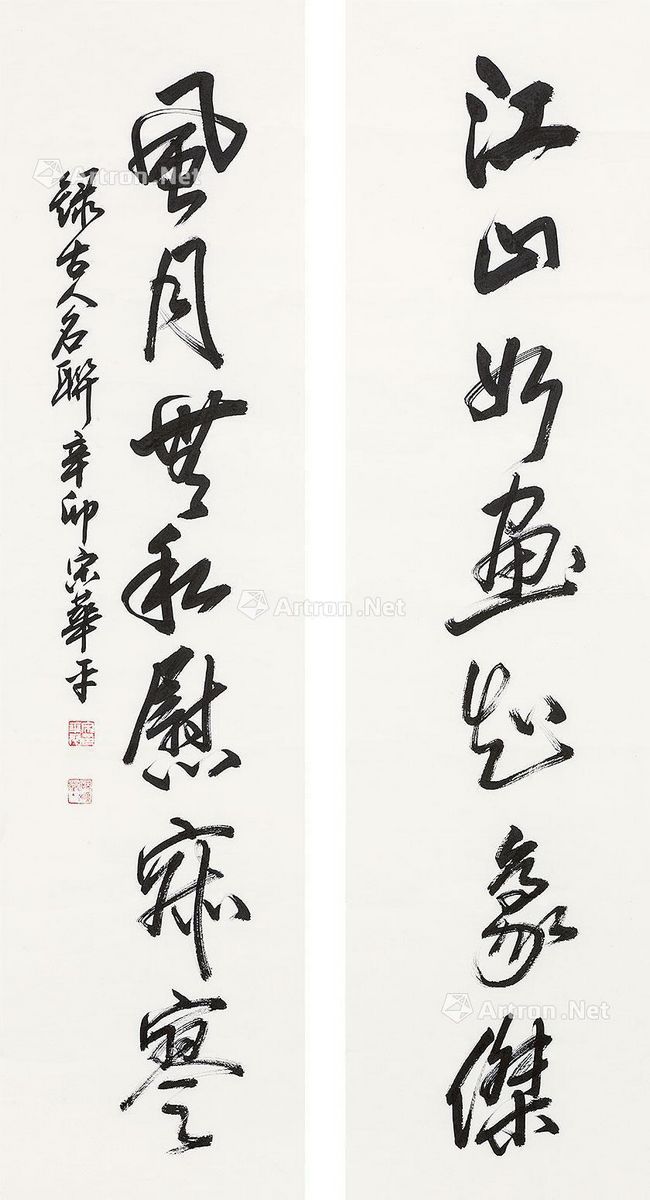 江山如画起豪傑
風月無私慰寂寥
録古人名聯 辛卯宋華平
Artron.Net
Artron.Net
Artron.Net